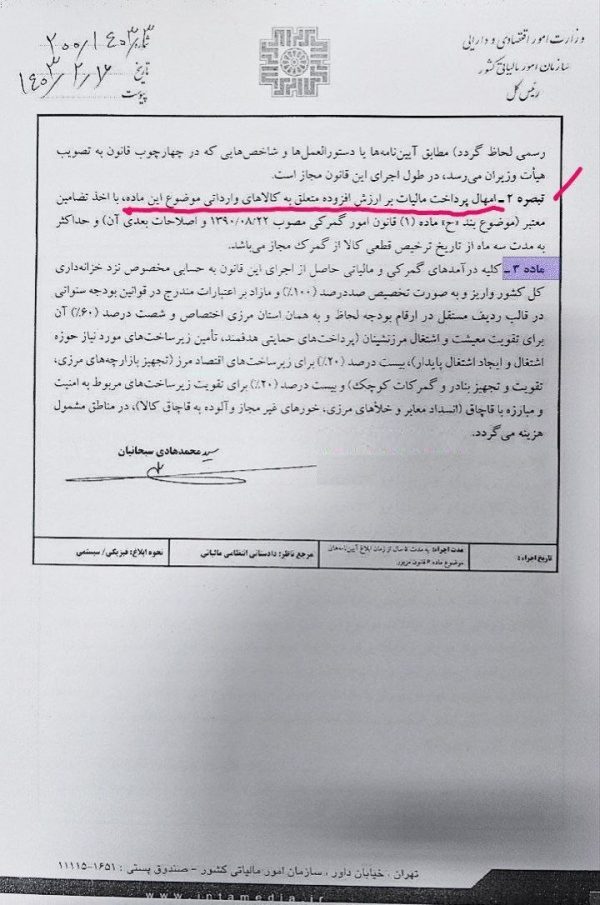 وزارت امور اقتصادی و دارایی
سازمان امور مالیاتی کشور
رئیس کل
شماره ۲۰۰/۱۴۰۳/۳
تاریخ ۱۴۰۳/۲/۱۶
پیوست
رسمی لحاظ گردد) مطابق آیین‌نامه‌ها یا دستورالعمل‌ها و شاخص‌هایی که در چهارچوب قانون به تصویب
هیأت وزیران می‌رسد، در طول اجرای این قانون مجاز است.
تبصره ۲ـ امهال پرداخت مالیات بر ارزش افزوده متعلق به کالاهای وارداتی موضوع این ماده، با اخذ تضامین
معتبر (موضوع بند «ح» ماده (۱) قانون امور گمرکی مصوب ۱۳۹۰/۰۸/۲۲ و اصلاحات بعدی آن) و حداکثر
به مدت سه ماه از تاریخ ترخیص قطعی کالا از گمرک مجاز می‌باشد.
ماده ۳ـ کلیه درآمدهای گمرکی و مالیاتی حاصل از اجرای این قانون به حسابی مخصوص نزد خزانه‌داری
کل کشور واریز و به صورت تخصیص صددرصد (۱۰۰٪) و مازاد بر اعتبارات مندرج در قوانین بودجه سنواتی
در قالب ردیف مستقل در ارقام بودجه لحاظ و به همان استان مرزی اختصاص و شصت درصد (۶۰٪) آن
برای تقویت معیشت و اشتغال مرزنشینان (پرداخت‌های حمایتی هدفمند، تأمین زیرساخت‌های مورد نیاز حوزه
اشتغال و ایجاد اشتغال پایدار)، بیست درصد (۲۰٪) برای زیرساخت‌های اقتصاد مرز (تجهیز بازارچه‌های مرزی،
تقویت و تجهیز بنادر و گمرکات کوچک) و بیست درصد (۲۰٪) برای تقویت زیرساخت‌های مربوط به امنیت
و مبارزه با قاچاق (انسداد معابر و خلأهای مرزی، خورهای غیر مجاز و آلوده به قاچاق کالا)، در مناطق مشمول
هزینه می‌گردد.
سید محمدهادی سبحانیان
تاریخ اجراء:
مدت اجراء: به مدت ۵ سال از زمان ابلاغ آیین‌نامه‌های
موضوع ماده ۶ قانون مزبور
مرجع ناظر: دادستانی انتظامی مالیاتی
نحوه ابلاغ: فیزیکی/ سیستمی
تهران، خیابان داور، سازمان امور مالیاتی کشور - صندوق پستی: ۱۶۵۱-۱۱۱۱۵
www.intamedia.ir